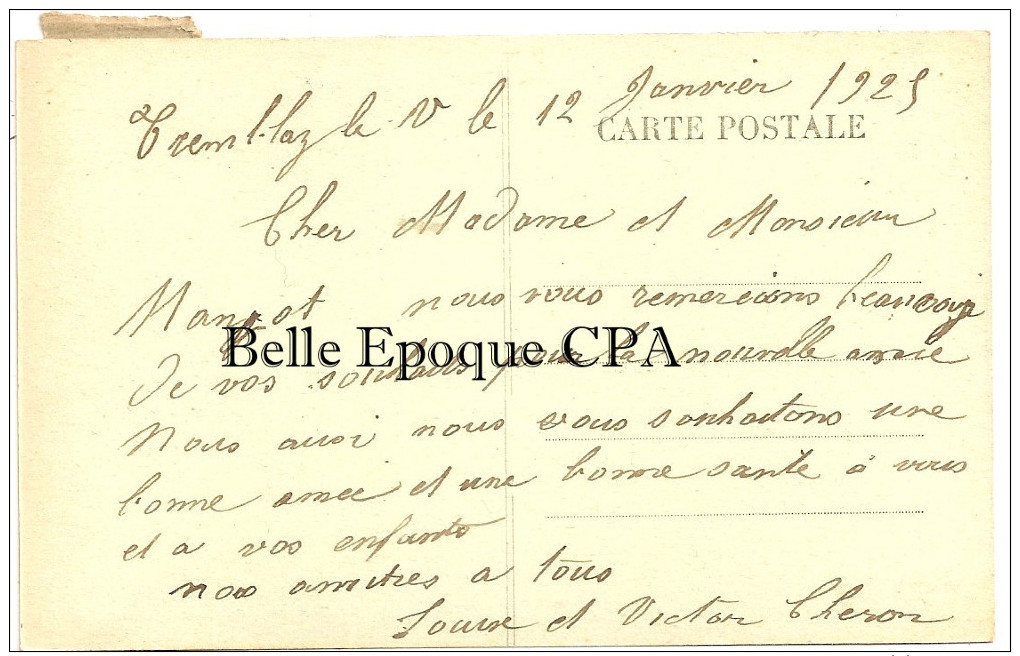 Tremblay le V le 12 Janvier 1925
CARTE POSTALE
Cher Madame et Monsieur
Mangot nous vous remercions beaucoup
Belle Epoque CPA
de vos souhaits pour la nouvelle anné
Nous aussi nous vous souhaitons une
bonne anneé et une bonne santé à vous
et a vos enfants
nos amitiés a tous
et Victor Cheron